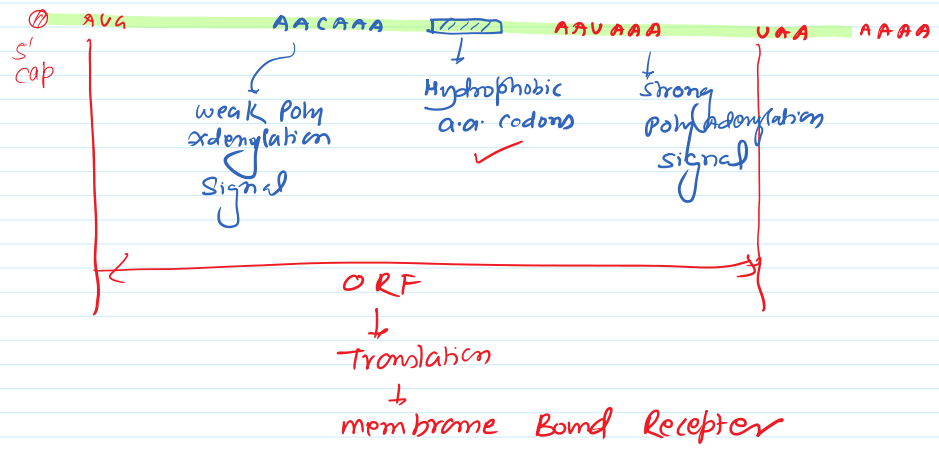 AUG AACAAA AAUAAA UAA AAAA
5'
cap
weak Poly
Adenylation
Signal
Hydrophobic
a.a. codons
Strong
Poly Adenylation
signal
ORF
Translation
membrane Bound Recepter